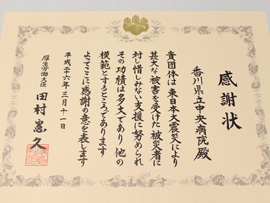 感謝状
香川県立中央病院殿
貴団体は東日本大震災により
甚大な被害を受けた被災者に
対し惜しみない支援に努められ
その功績は多大であり他の
模範とするところであります
よってここに感謝の意を表します
平成二十六年三月十一日
厚生労働大臣
田村憲久